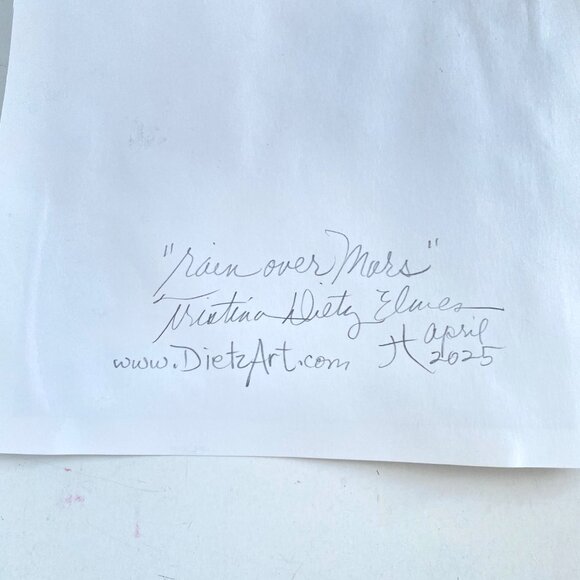 "rain over Mars"
Kristina Dietz Elmes
www.DietzArt.com April
2025